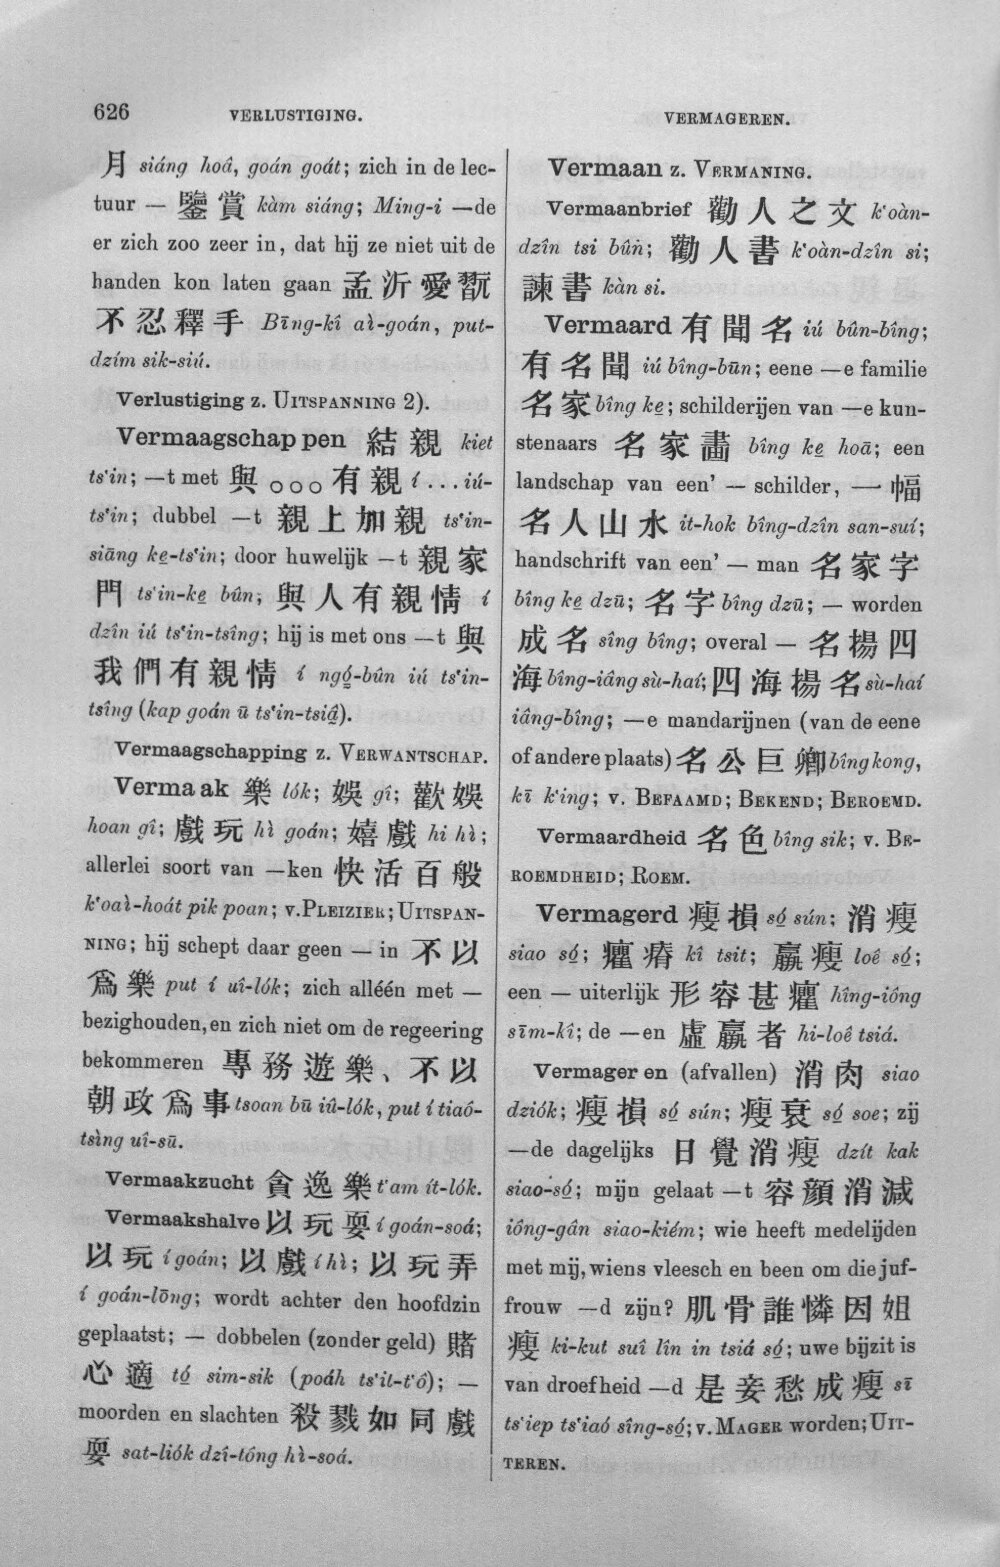 626
VERLUSTIGING.
VERMAGEREN.
月 siáng hoâ, goán goát; zich in de lec-
tuur — 鑒賞 kàm siáng; Ming-i —de
er zich zoo zeer in, dat hij ze niet uit de
handen kon laten gaan 孟沂愛翫
不忍釋手 Bīng-kî aì-goán, put-
dzím sik-siú.
Verlustiging z. UITSPANNING 2).
Vermaagschappen 結親 kiet
ts'in; —t met 與○○○有親 í ... iú-
ts'in; dubbel —t 親上加親 ts'in-
siāng ke̱-ts'in; door huwelijk —t 親家
門 ts'in-ke̱ bûn; 與人有親情 í
dzîn iú ts'in-tsîng; hij is met ons —t 與
我們有親情 í ngó̱-bûn iú ts'in-
tsîng (kap goán ū ts'in-tsiâ̱).
Vermaagschapping z. VERWANTSCHAP.
Vermaak 樂 lók; 娛 gî; 歡娛
hoan gî; 戲玩 hì goán; 嬉戲 hi hì;
allerlei soort van —ken 快活百般
k'oaì-hoát pik poan; v. PLEIZIER; UITSPAN-
NING; hij schept daar geen — in 不以
爲樂 put í uî-lók; zich alléén met —
bezighouden, en zich niet om de regeering
bekommeren 專務遊樂、不以
朝政爲事 tsoan bū iû-lók, put í tiaô-
tsìng uî-sū.
Vermaakzucht 貪逸樂 t'am ít-lók.
Vermaakshalve 以玩耍 í goán-soá;
以玩 í goán; 以戲 í hì; 以玩弄
í goán-lōng; wordt achter den hoofdzin
geplaatst; — dobbelen (zonder geld) 賭
心適 tó̱ sim-sik (poáh ts'it-t'ô); —
moorden en slachten 殺戮如同戲
耍 sat-liók dzî-tông hì-soá.
Vermaan z. VERMANING.
Vermaanbrief 勸人之文 k'oàn-
dzîn tsi bûn; 勸人書 k'oàn-dzîn si;
諫書 kàn si.
Vermaard 有聞名 iú bûn-bîng;
有名聞 iú bîng-būn; eene —e familie
名家 bîng ke̱; schilderijen van —e kun-
stenaars 名家畵 bîng ke̱ hoā; een
landschap van een' — schilder, 一幅
名人山水 it-hok bîng-dzîn san-suí;
handschrift van een' — man 名家字
bîng ke̱ dzū; 名字 bîng dzū; — worden
成名 sîng bîng; overal — 名揚四
海 bîng-iâng sù-haí; 四海揚名 sù-haí
iâng-bîng; —e mandarijnen (van de eene
of andere plaats) 名公巨卿 bîng kong,
kī k'ing; v. BEFAAMD; BEKEND; BEROEMD.
Vermaardheid 名色 bîng sik; v. BE-
ROEMDHEID; ROEM.
Vermagerd 瘦損 só̱ sún; 消瘦
siao só̱; 癯瘠 kî tsit; 羸瘦 loê só̱;
een — uiterlijk 形容甚癯 hîng-iông
sīm-kî; de —en 虛羸者 hi-loê tsiá.
Vermageren (afvallen) 消肉 siao
dziók; 瘦損 só̱ sún; 瘦衰 só̱ soe; zij
—de dagelijks 日覺消瘦 dzít kak
siao-só̱; mijn gelaat —t 容顏消減
iông-gân siao-kiém; wie heeft medelijden
met mij, wiens vleesch en been om die juf-
frouw —d zijn? 肌骨誰憐因姐
瘦 ki-kut suî lîn in tsiá só̱; uwe bijzit is
van droefheid —d 是妾愁成瘦 sī
ts'iep ts'iaó sîng-só̱; v. MAGER worden; UIT-
TEREN.